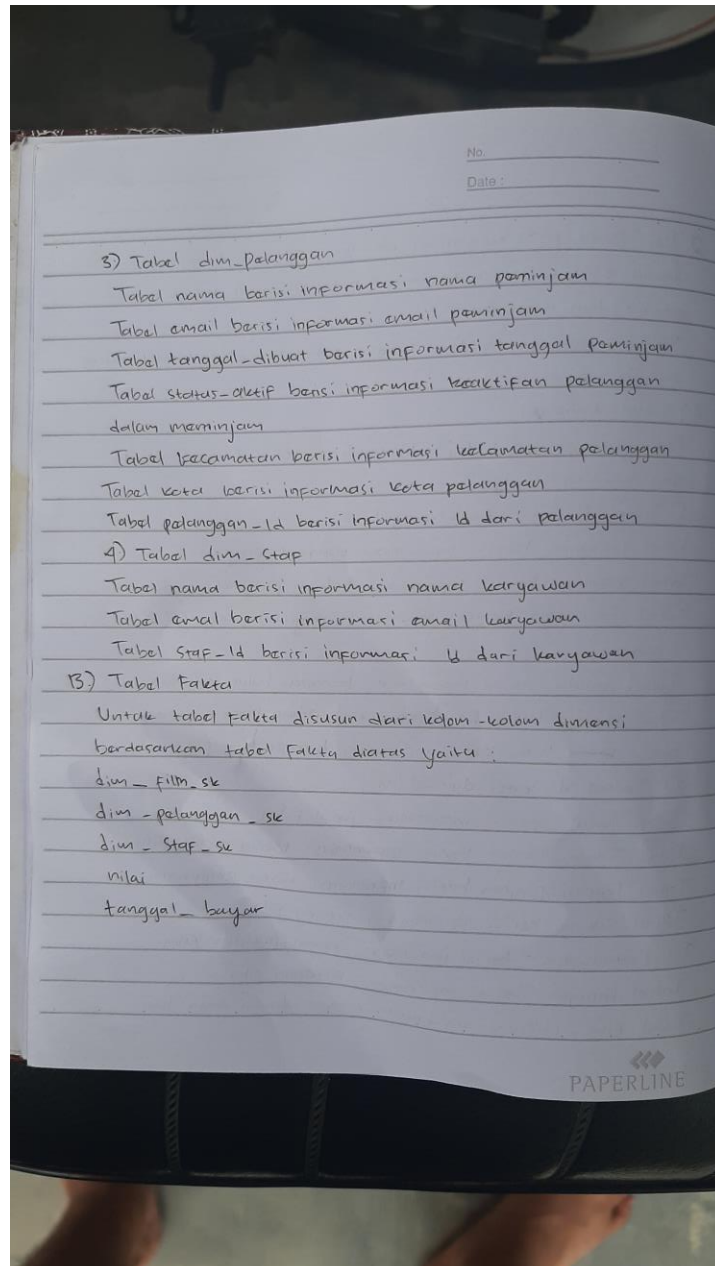 No.
Date :
3) Tabel dim_pelanggan
Tabel nama berisi informasi nama peminjam
Tabel email berisi informasi email peminjam
Tabel tanggal_dibuat berisi informasi tanggal peminjam
Tabel status_aktif berisi informasi keaktifan pelanggan
dalam meminjam
Tabel kecamatan berisi informasi kecamatan pelanggan
Tabel kota berisi informasi kota pelanggan
Tabel pelanggan_Id berisi informasi Id dari pelanggan
4) Tabel dim_staf
Tabel nama berisi informasi nama karyawan
Tabel emal berisi informasi email karyawan
Tabel staf_Id berisi informasi Id dari karyawan
B.) Tabel Fakta
Untuk tabel Fakta disusun dari kolom-kolom dimensi
berdasarkan tabel Fakta diatas yaitu :
dim_film_sk
dim_pelanggan_sk
dim_staf_sk
nilai
tanggal_bayar
PAPERLINE